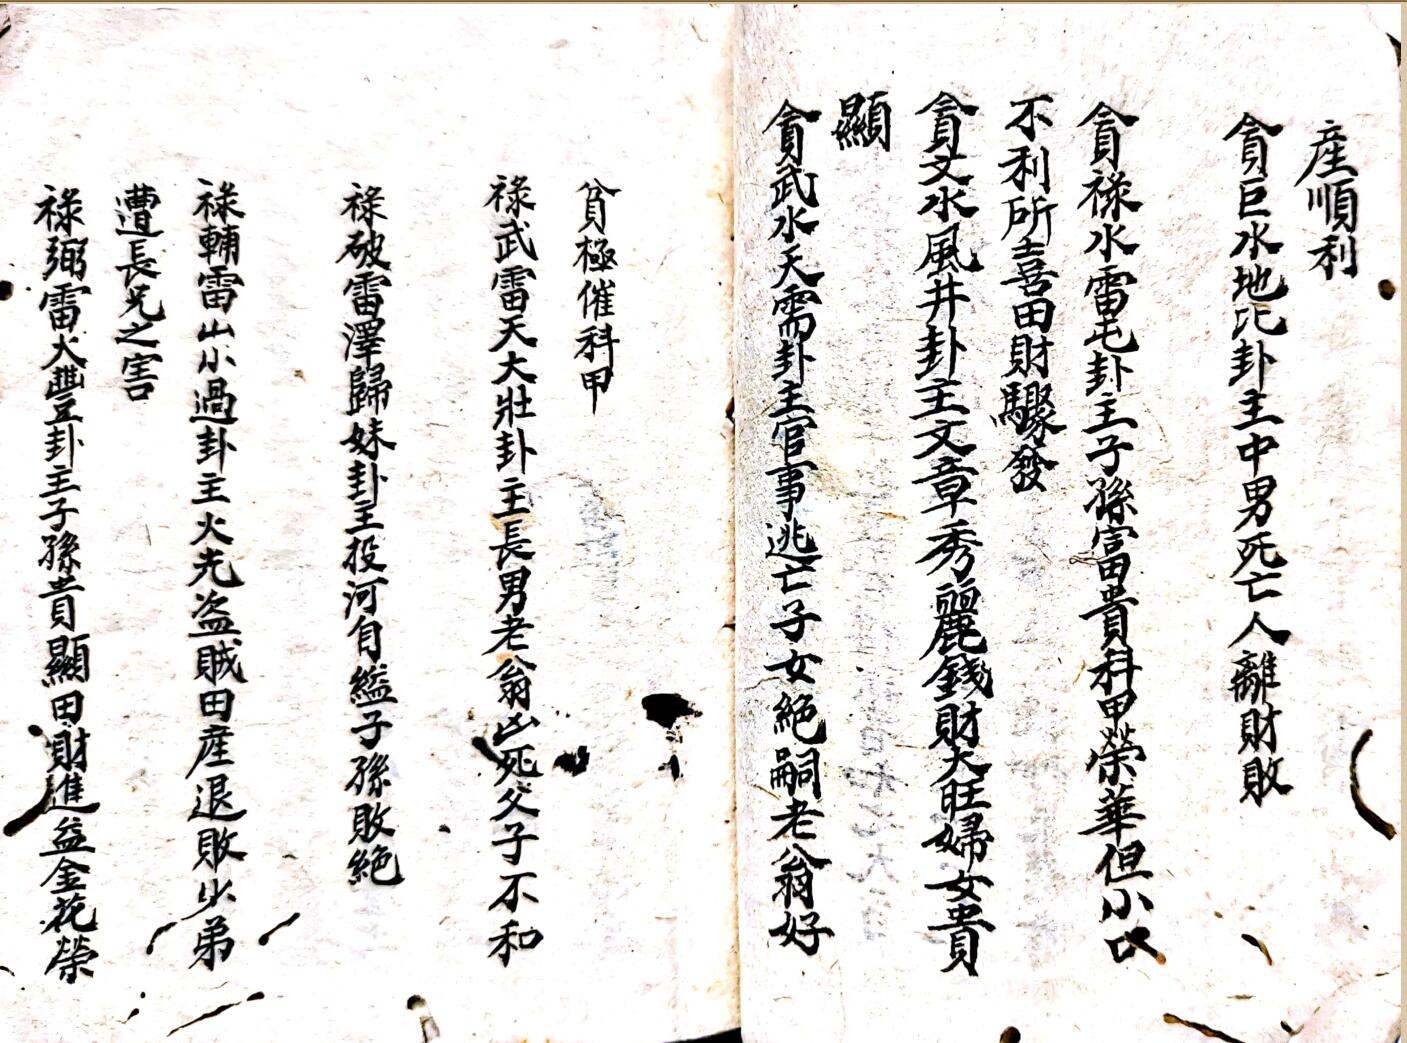 產順利
貪巨水地比卦主中男死亡人離財敗
貪祿水雷屯卦主子孫富貴科甲榮華但小口
不利所喜田財驟發
貪文水風井卦主文章秀麗錢財大旺婦女貴
顯
貪武水天需卦主官事逃亡子女絕嗣老翁好
貧極催科甲
祿武雷天大壯卦主長男老翁凶死父子不和
祿破雷澤歸妹卦主投河自縊子孫敗絕
祿輔雷山小過卦主火光盜賊田産退敗少弟
遭長兄之害
祿弼雷火豐卦主子孫貴顯田財進益金花榮